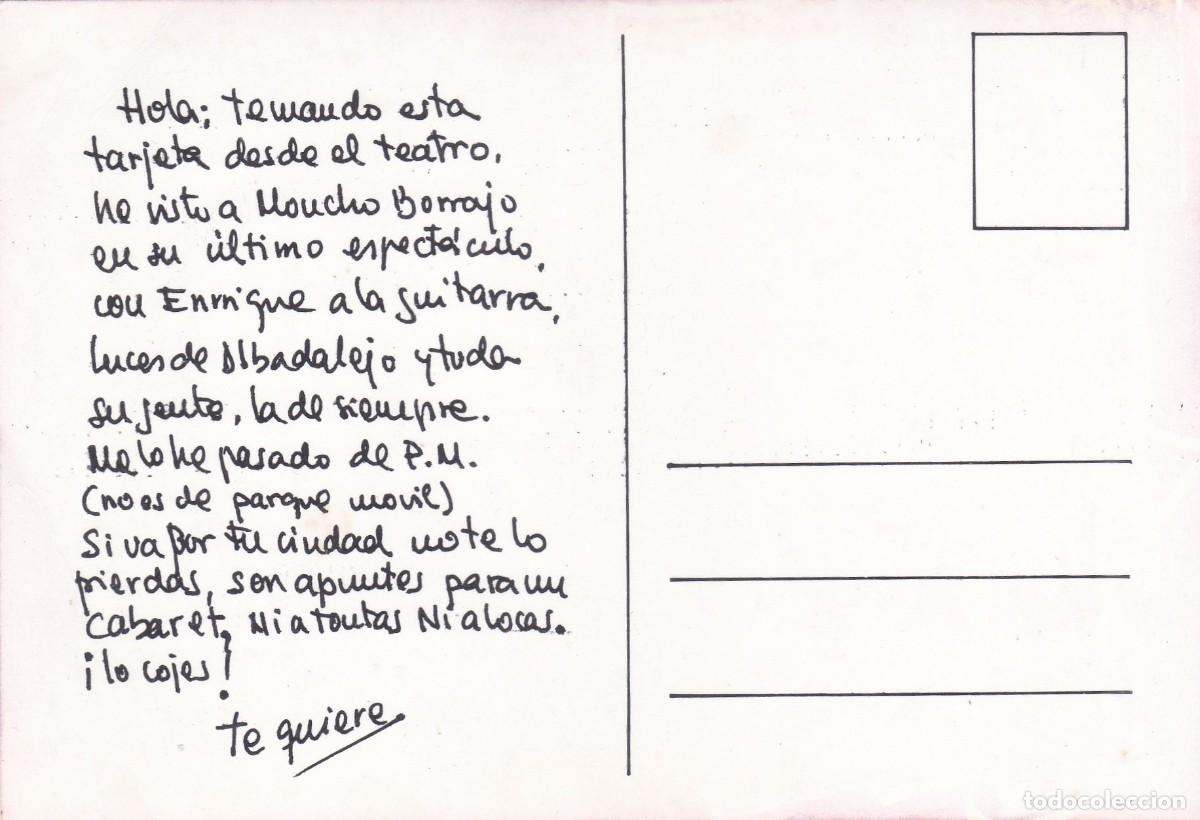 Hola; temando esta
tarjeta desde el teatro,
he visto a Moncho Borrajo
en su último espectáculo,
con Enrrique a la guitarra,
luces de Albadalejo y toda
su gente, la de siempre.
Me lo he pasado de P.M.
(no es de parque movil)
Si va por tu ciudad no te lo
pierdas, son apuntes para un
Cabaret, Ni a Tontas Ni a locas.
¡lo cojes!
te quiere.
todocoleccion